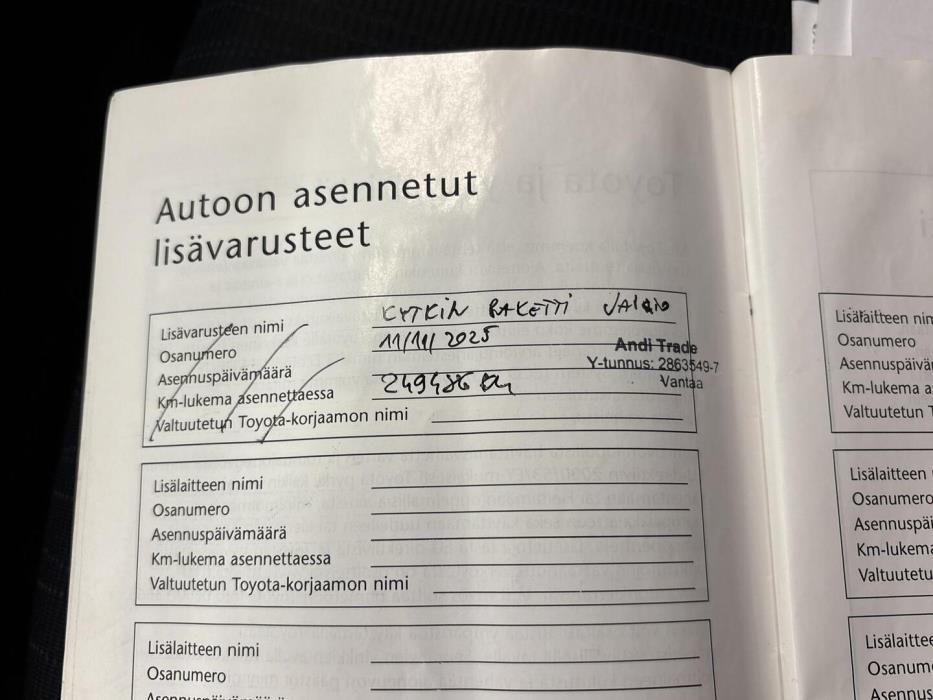 Autoon asennetut
lisävarusteet
Lisävarusteen nimi KYTKIN PAKETTI VALEO
Osanumero 11/11/2025
Andi Trade
Asennuspäivämäärä
Y-tunnus: 2863549-7
Km-lukema asennettaessa 249486 km
Vantaa
Valtuutetun Toyota-korjaamon nimi
Lisälaitteen nimi
Osanumero
Asennuspäivämäärä
Km-lukema asennettaessa
Valtuutetun Toyota-korjaamon nimi
Lisälaitteen nimi
Osanumero
Asennuspäivämäärä
Lisälaitteen nim
Osanumero
Asennuspäiväm
Km-lukema a
Valtuutetun T
Lisälaitteen
Osanumero
Asennuspäi
Km-lukema
Valtuutetu
Lisälaittee
Osanum
Asennus